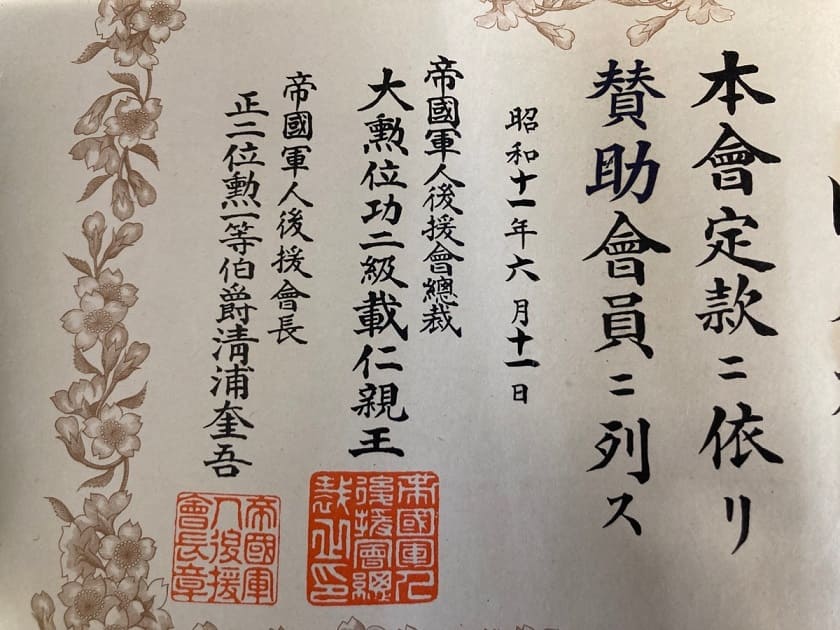 本會定款ニ依リ
賛助會員ニ列ス
昭和十一年六月十一日
帝國軍人後援會總裁
大勲位功二級載仁親王
帝國軍人後援會長
正二位勲一等伯爵清浦奎吾
帝國軍人
後援會總
裁之印
帝國軍
人後援
會長章